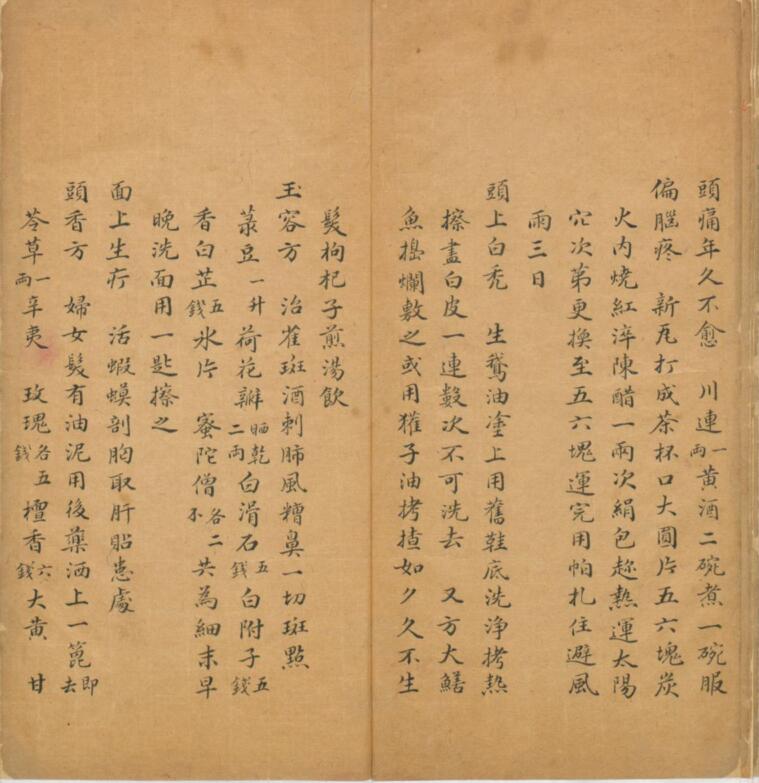 頭痛年久不愈　川連一兩黃酒二碗煮一碗服
偏腦疼　新瓦打成茶杯口大圓片五六塊炭
火內燒紅淬陳醋一兩次絹包趂熱運太陽
穴次第更換至五六塊運完用帕扎住避風
兩三日
頭上白禿　生鵞油塗上用舊鞋底洗淨拷熱
擦盡白皮一連數次不可洗去　又方大鱔
魚搗爛敷之或用獾子油拷擦如夕久不生
髮枸杞子煎湯飲
玉容方　治雀斑酒刺肺風糟鼻一切斑點
菉豆一升荷花瓣晒乾二兩白滑石五錢白附子五錢
香白芷五錢氷片　蜜陀僧各二不共為細末早
晚洗面用一匙擦之
面上生疔　活蝦蟆剖胸取肝貼患處
頭香方　婦女髮有油泥用後藥洒上一篦即去
苓草一兩辛夷　玫瑰各五錢檀香六錢大黃　甘